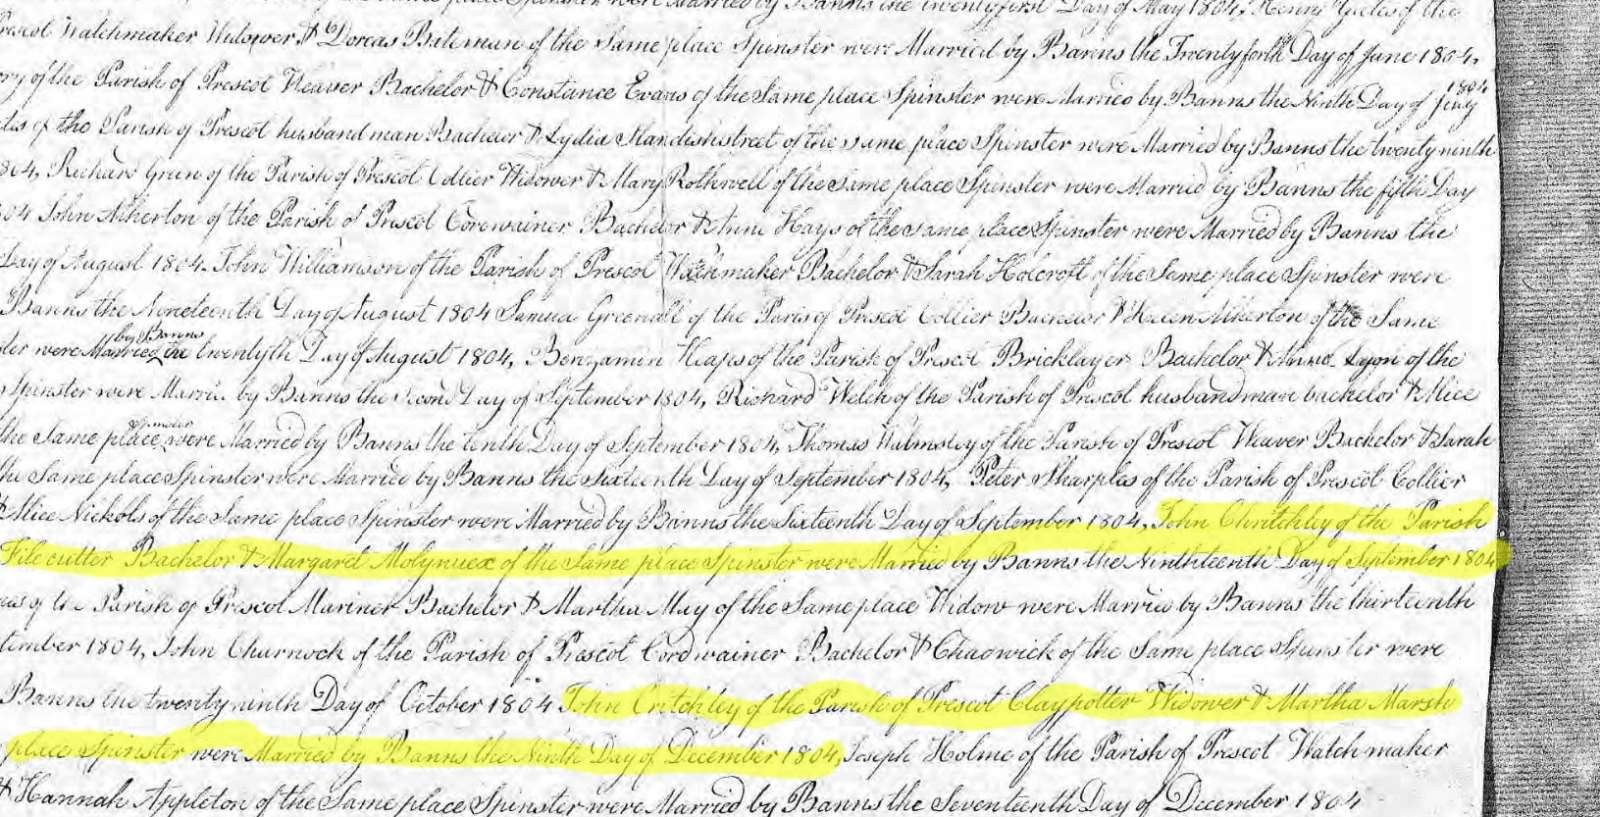 place Spinster were Married by Banns the twentyfirst Day of May 1804, Henry Yates of the
Prescot Watchmaker Widower, & Dorcas Bateman of the Same place Spinster were Married by Banns the Twentyforth Day of June 1804,
ory of the Parish of Prescot Weaver Bachelor & Constance Evans of the Same place Spinster were Married by Banns the Ninth Day of July 1804
les of the Parish of Prescot husbandman Bachelor & Lydia Standishstreet of the same place Spinster were Married by Banns the twenty ninth
804, Richard Green of the Parish of Prescot Collier Widower & Mary Rothwell of the Same place Spinster were Married by Banns the fifth Day
804 John Atherton of the Parish of Prescot Corewainer Bachelor & Anne Hays of the same place Spinster were Married by Banns the
Day of August 1804. John Williamson of the Parish of Prescot Watchmaker Bachelor & Sarah Holcroft of the Same place Spinster were
Banns the Nineteenth Day of August 1804 Samuel Greenall of the Paris of Prescot Collier Bachelor & Ellen Atherton of the Same
ter were Married by Banns the twentyth Day of August 1804, Benjamin Heaps of the Parish of Prescot Bricklayer Bachelor & Anne Lyon of the
Spinster were Married by Banns the Second Day of September 1804, Richard Welch of the Parish of Prescot husbandman bachelor & Alice
the Same place Spinster were Married by Banns the tenth Day of September 1804, Thomas Walmsley of the Parish of Prescot Weaver Bachelor & Sarah
the Same place Spinster were Married by Banns the Sixteenth Day of September 1804, Peter Sharples of the Parish of Prescot Collier
& Alice Nickols of the Same place Spinster were Married by Banns the Sixteenth Day of September 1804, John Chritchley of the Parish
File cutter Bachelor & Margaret Molynuex of the Same place Spinster were Married by Banns the Ninthteenth Day of September 1804
eas of the Parish of Prescot Mariner Bachelor & Martha May of the Same place Widow were Married by Banns the thirteenth
tember 1804, John Churnock of the Parish of Prescot Cordwainer Bachelor & Chadwick of the Same place Spinster were
Banns the twenty ninth Day of October 1804 John Critchley of the Parish of Prescot Claypotter Widower & Martha Marsh
place Spinster were Married by Banns the Ninth Day of December 1804, Joseph Holme of the Parish of Prescot Watchmaker
& Hannah Appleton of the Same place Spinster were Married by Banns the Seventeenth Day of December 1804